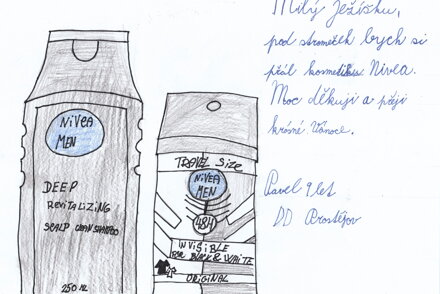 Milý Ježíšku,
pod stromeček bych si
přál kosmetiku Nivea.
Moc děkuji a přeji
krásné Vánoce.
Pavel 9 let
DD Prostějov
NiVEA
MEN
DEEP
REVITALIZING
SCALP CLEAN SHAMPOO
250 ML
TRAVEL SiZE
NiVEA
MEN
48H
INVISIBLE
FOR BLACK & WAITE
ORIGINAL